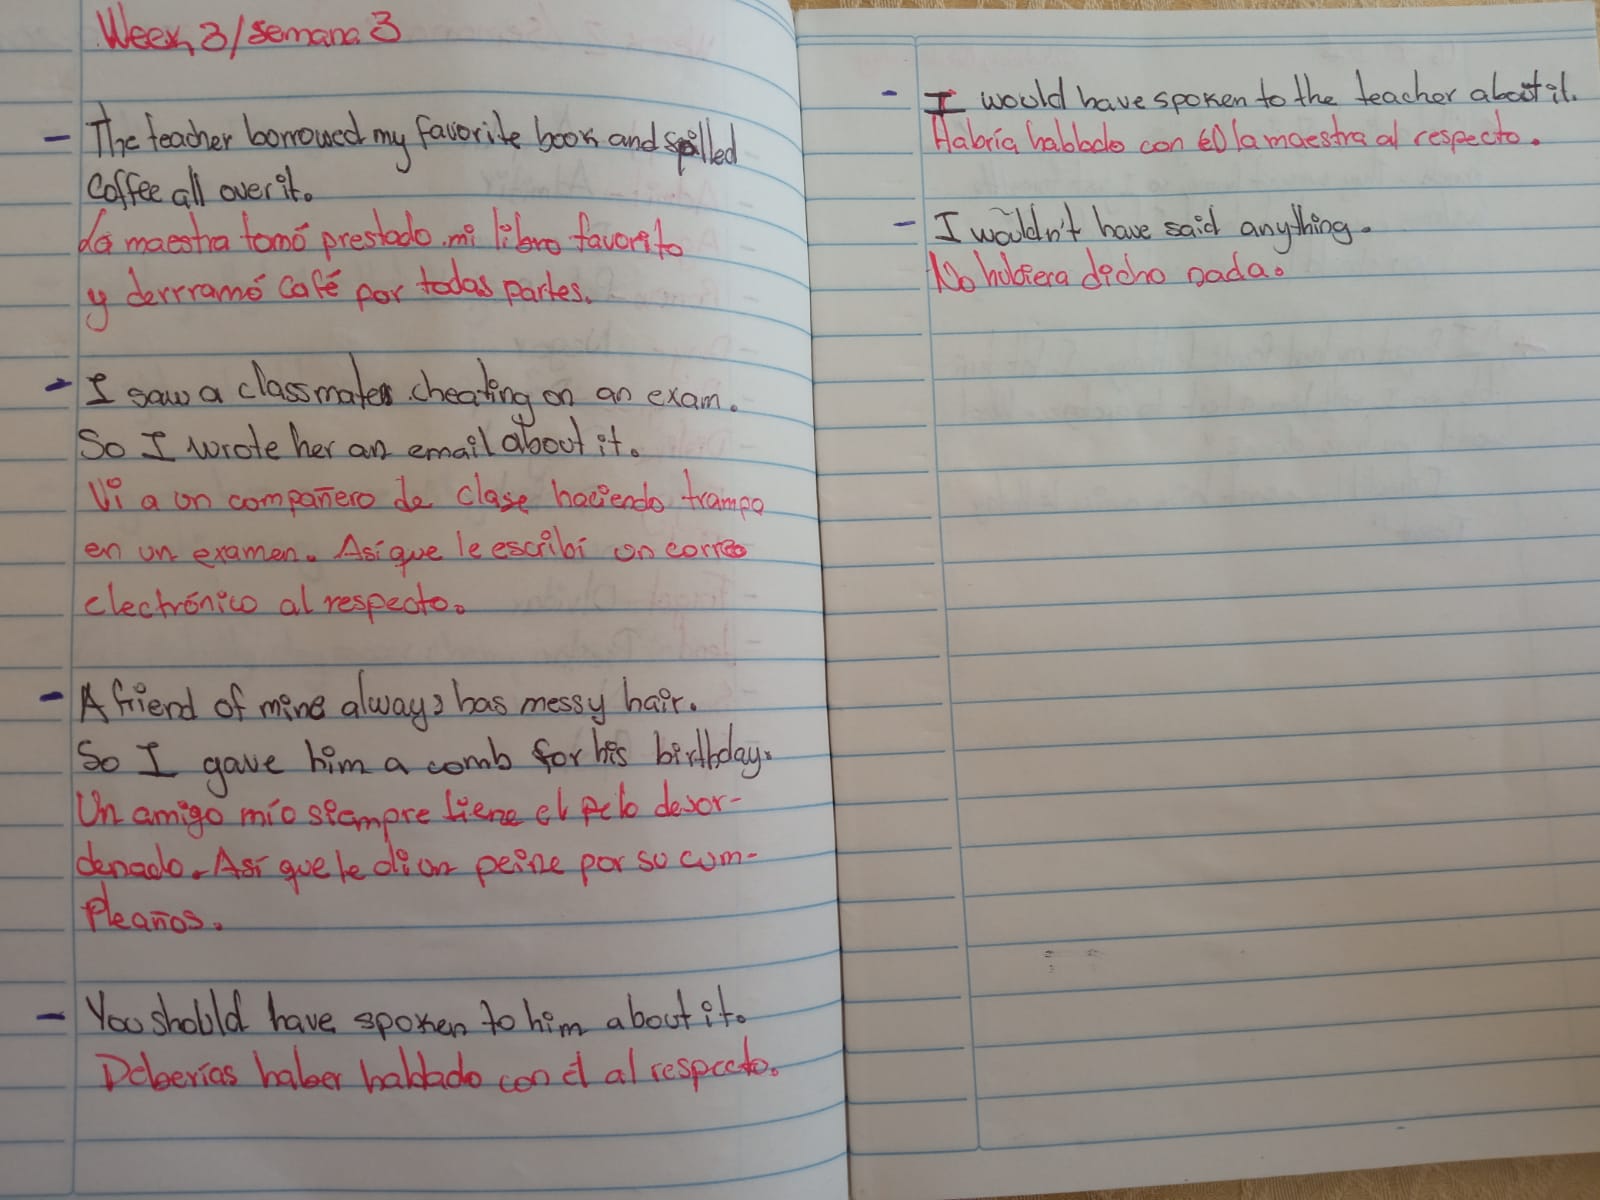 Week 3/Semana 3
- The teacher borrowed my favorite book and spilled
coffee all over it.
La maestra tomó prestado mi libro favorito
y derrramó café por todas partes.
- I saw a classmate cheating on an exam.
So I wrote her an email about it.
Vi a un compañero de clase haciendo trampa
en un examen. Así que le escribí un correo
electrónico al respecto.
- A friend of mine always has messy hair.
So I gave him a comb for his birthday.
Un amigo mío siempre tiene el pelo desor-
denado. Así que le di un peine por su cum-
pleaños.
- You should have spoken to him about it.
Deberías haber hablado con él al respecto.
- I would have spoken to the teacher about it.
Habría hablado con la maestra al respecto.
- I wouldn't have said anything.
No hubiera dicho nada.